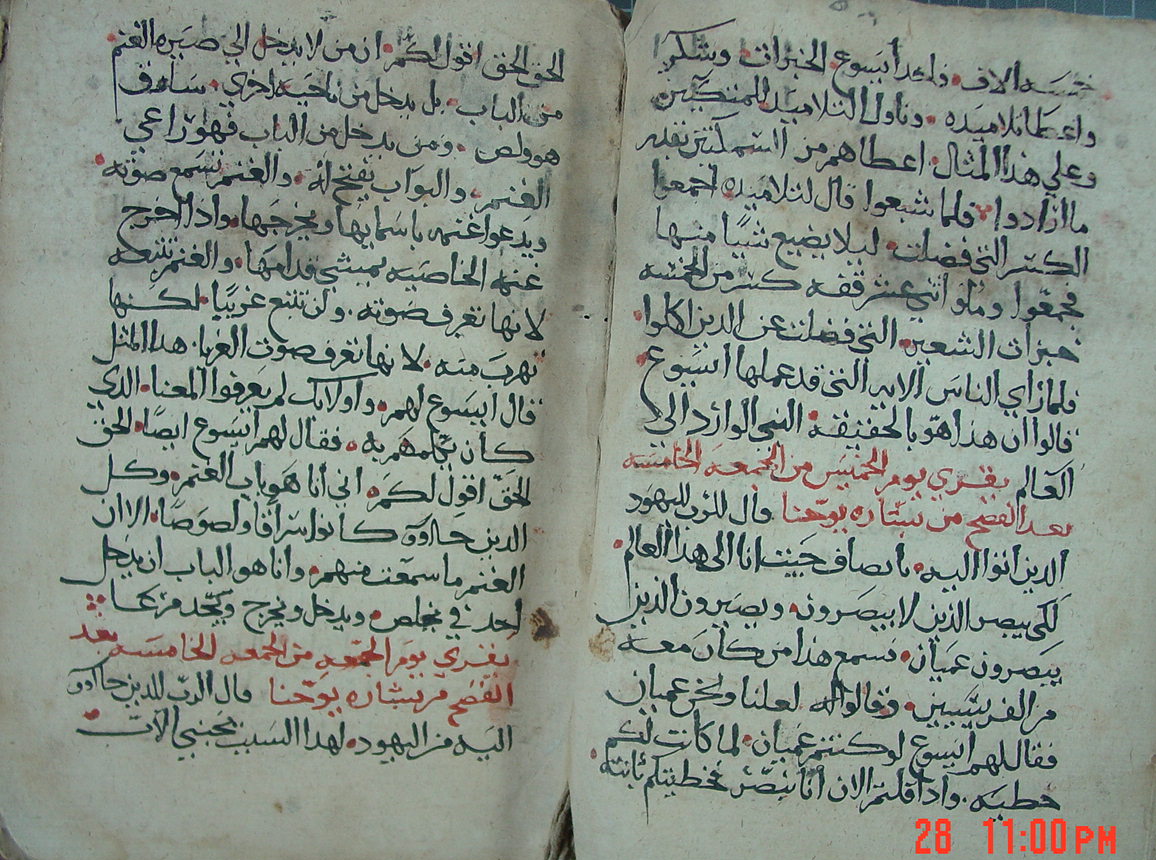 خمسه الاف فاخد أيسوع الخبزات وشكر
واعطا تلاميده وناول التلاميد للمتكيين
وعلي هذا المثال اعطاهم من السمكتين بقدر
ما ارادوا فلما شبعوا قال لتلاميده اجمعوا
الكسر التي فضلت ليلا يضيع شيًا منها
فجمعوا وملوا اثني عشر قفه كسر من الخمسه
خبزات الشعير التي فضلت عن الدين اكلوا
فلما رأي الناس الايه التي قد عملها أيسوع
قالوا ان هذا هو بالحقيقه النبي الوارد الي
العالم يقري يوم الخميس من الجمعه الخامسه
بعد الفصح من بشاره يوحنا قال الرب لليهود
الدين أتوا اليه بانصاف جيت انا الي هذا العالم
لكي يبصر الذين لا يبصرون ويصيرون الذين
يبصرون عميان فسمع هذا من كان معه
من الفريسيين وقالوا له لعلنا ونحن عميان
فقال لهم أيسوع لو كنتم عميان لما كانت لكم
خطيه واذا قلتم الان أنا نبصر فخطيتكم ثابته
28 11:00 PM
الحق الحق اقول لكم ان من لا يدخل الي صيره الغنم
من الباب بل يدخل من ناحيه اخري سارق
هو ولص ومن يدخل من الباب فهو راعي
الغنم والبواب يفتح له والغنم تسمع صوته
ويدعوا غنمه باسمايها ويخرجها واذا اخرج
غنمه الخاصيه يمشي قدامها والغنم تتبعه
لانها تعرف صوته ولن تتبع غريبًا لكنها
تهرب منه لانها تعرف صوت الغربا هذا المثل
قال أيسوع لهم واولايك لم يعرفوا المعنا الدي
كان يكلمهم به فقال لهم أيسوع ايضًا الحق
الحق اقول لكم اني أنا هو باب الغنم وكل
الدين جااوو كانوا سراقا ولصوصا الا ان
الغنم ما سمعت منهم وأنا هو الباب ان يدخل
احد في يخلص ويدخل ويخرج ويجد مرعا
يقري يوم الجمعه من الجمعه الخامسه بعد
الفصح من بشاره يوحنا قال الرب للدين جااوو
اليه من اليهود لهذا السبب يحبني الاب